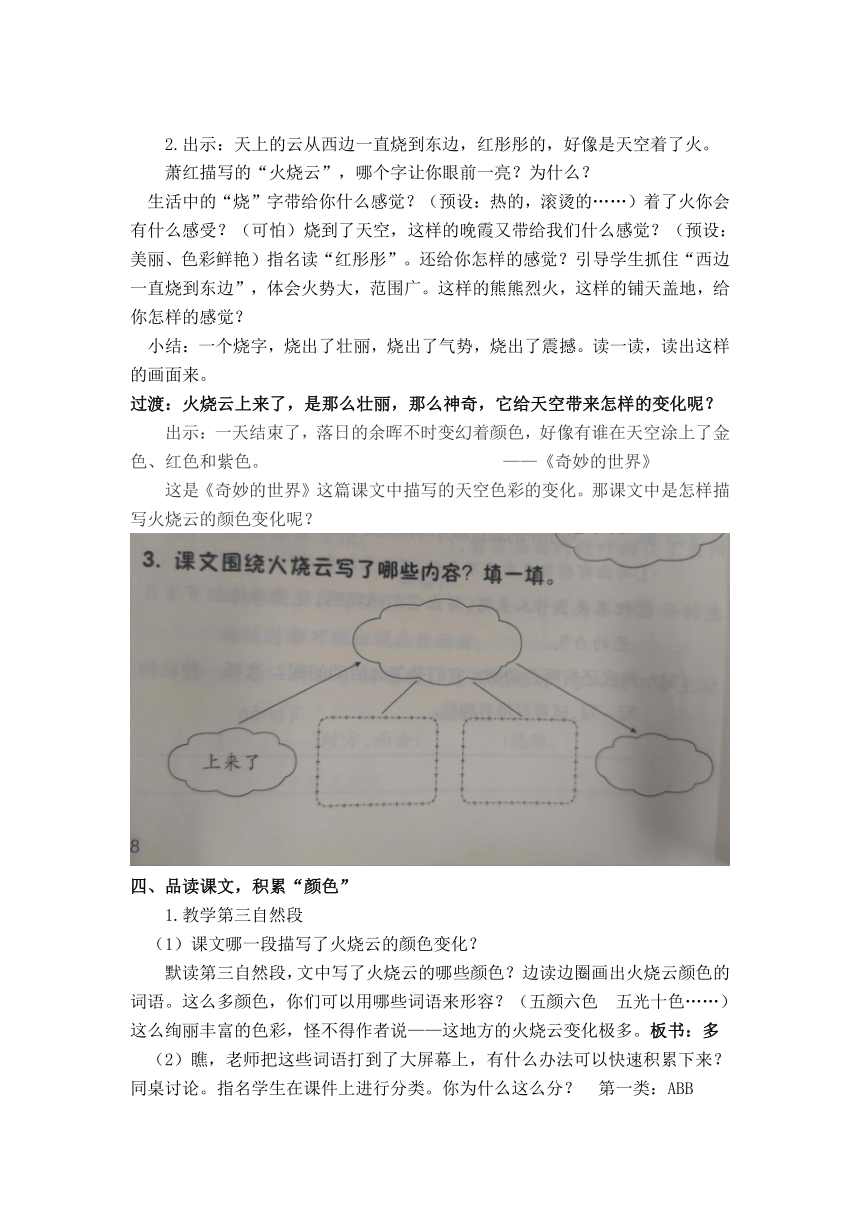 2.出示：天上的云从西边一直烧到东边，红彤彤的，好像是天空着了火。
萧红描写的“火烧云”，哪个字让你眼前一亮？为什么？
生活中的“烧”字带给你什么感觉？（预设：热的，滚烫的……）着了火你会
有什么感受？（可怕）烧到了天空，这样的晚霞又带给我们什么感觉？（预设：
美丽、色彩鲜艳）指名读“红彤彤”。还给你怎样的感觉？引导学生抓住“西边
一直烧到东边”，体会火势大，范围广。这样的熊熊烈火，这样的铺天盖地，给
你怎样的感觉？
小结：一个烧字，烧出了壮丽，烧出了气势，烧出了震撼。读一读，读出这样
的画面来。
过渡：火烧云上来了，是那么壮丽，那么神奇，它给天空带来怎样的变化呢？
出示：一天结束了，落日的余晖不时变幻着颜色，好像有谁在天空涂上了金
色、红色和紫色。 ——《奇妙的世界》
这是《奇妙的世界》这篇课文中描写的天空色彩的变化。那课文中是怎样描
写火烧云的颜色变化呢？
3. 课文围绕火烧云写了哪些内容？填一填。
上来了
8
四、品读课文，积累“颜色”
1.教学第三自然段
（1）课文哪一段描写了火烧云的颜色变化？
默读第三自然段，文中写了火烧云的哪些颜色？边读边圈画出火烧云颜色的
词语。这么多颜色，你们可以用哪些词语来形容？（五颜六色 五光十色……）
这么绚丽丰富的色彩，怪不得作者说——这地方的火烧云变化极多。板书：多
（2）瞧，老师把这些词语打到了大屏幕上，有什么办法可以快速积累下来？
同桌讨论。指名学生在课件上进行分类。你为什么这么分？ 第一类：ABB